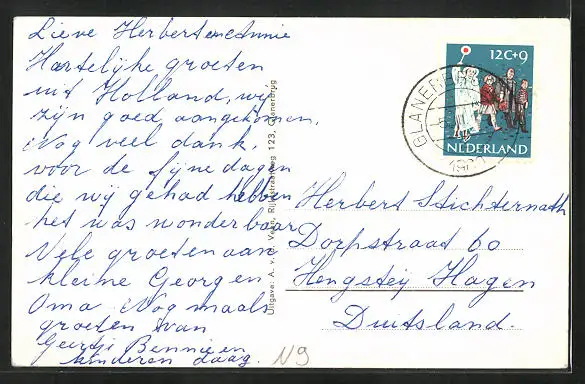 Lieve Herbert en Annie
Hartelijke groeten
uit Holland, wij
zijn goed aangekomen,
Nog veel dank,
voor de fijne dagen
die wij gehad hebben
het was wonderbaar
Vele groeten aan
kleine Georgen
Oma Nog maals
groeten van
Geertje Bennie en
kinderen daag.
N9
Uitgave: A. v. d. Veen, Rijksstraatweg 123, Glanerbrug
12C+9
NEDERLAND
GLANERBRUG
Herbert Stichternath
Dorpstraat 60
Hengstey Hagen
Duitsland.